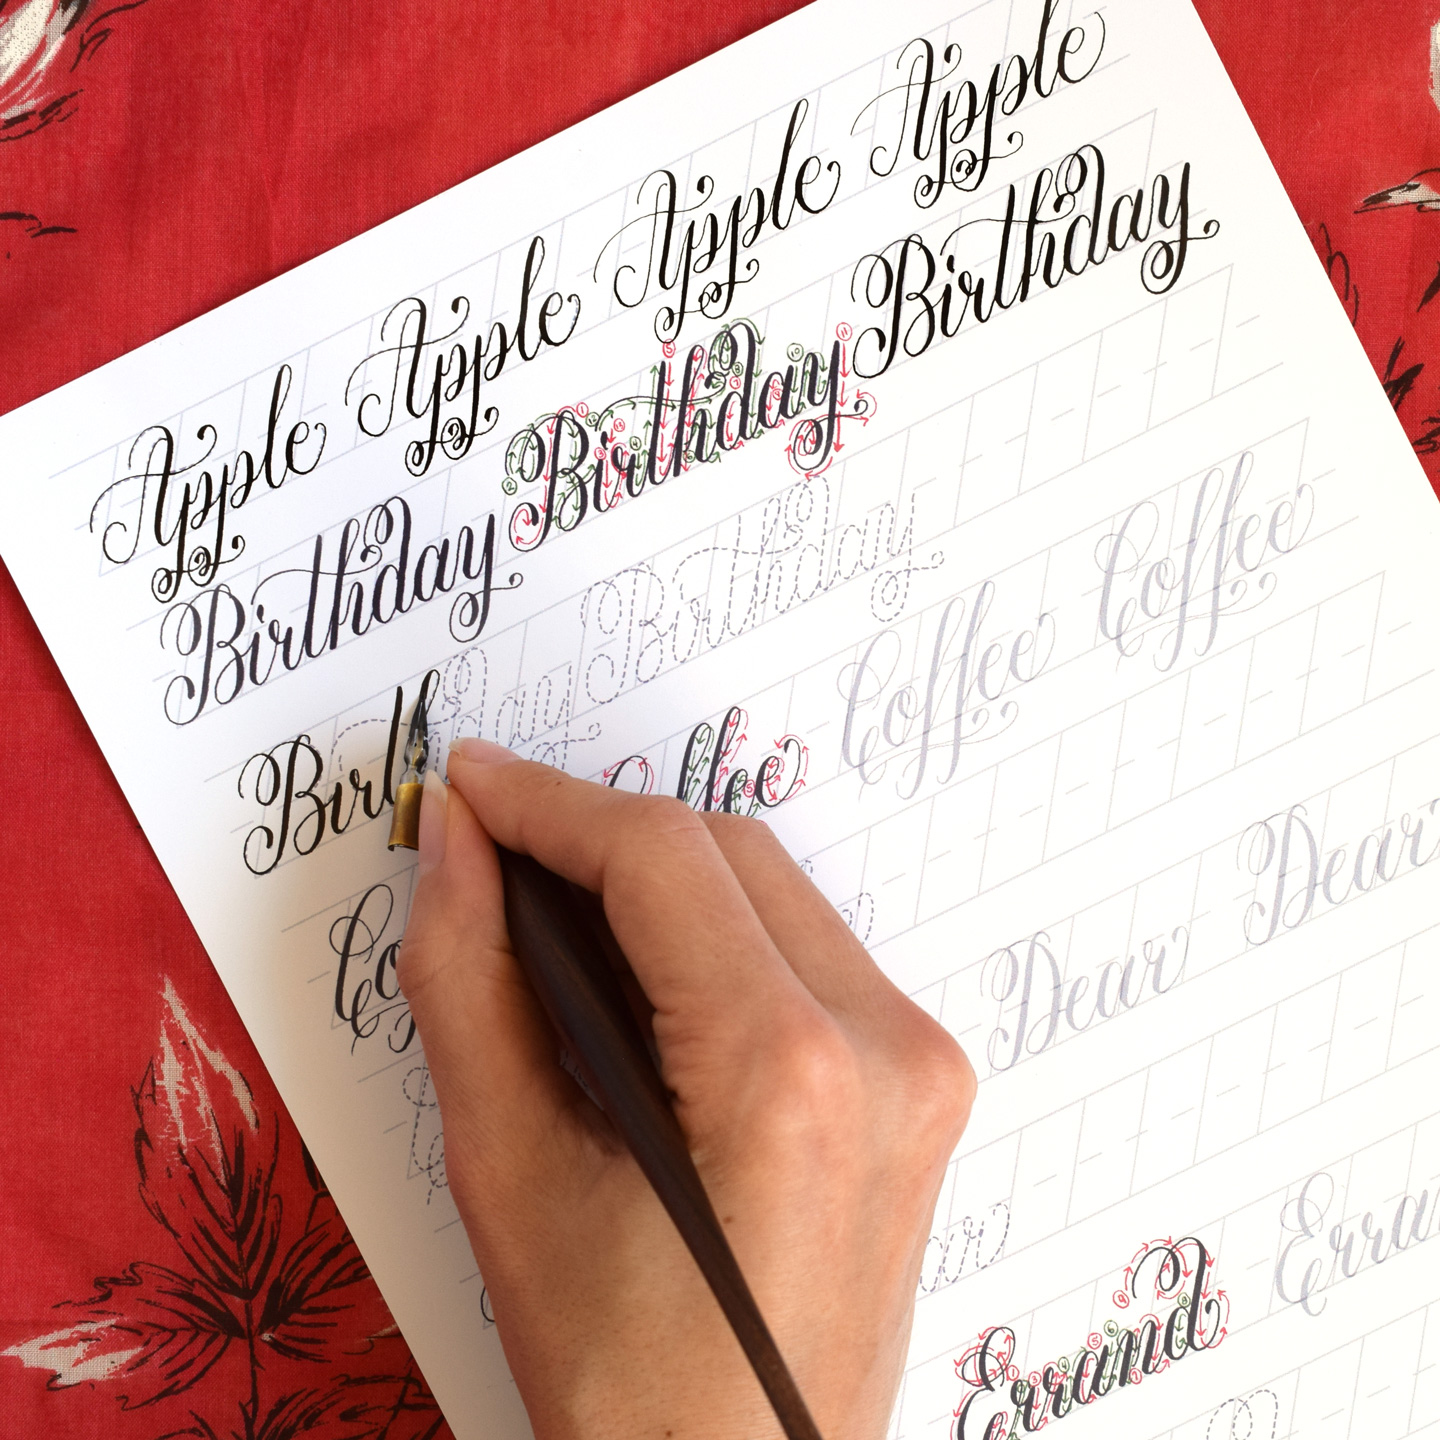 Apple Apple Apple Apple
Birthday Birthday Birthday
Birth day Birthday
Coffee Coffee Coffee
Dear Dear
Errand